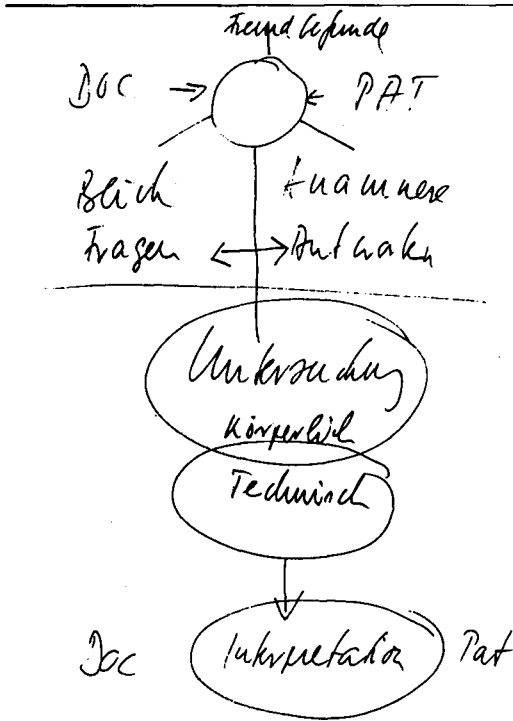 Fremdbefunde
DOC PAT
Blick Anamnese
Fragen Antworten
Untersuchung
Körperlich
Technisch
Doc Interpretation Pat